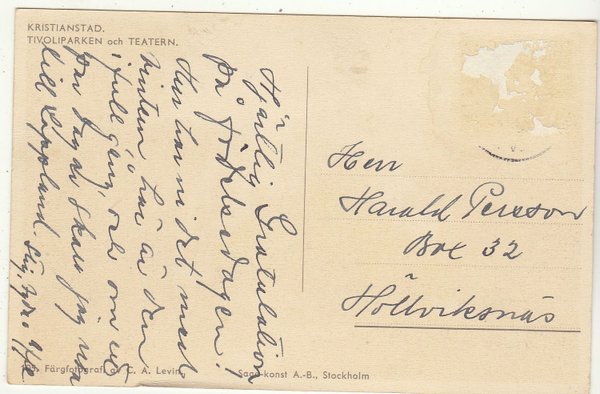 KRISTIANSTAD.
TIVOLIPARKEN och TEATERN.
Hjärtlig Gratulation
På Födelsedagen!
Hur har ni det med
vintern här är den
i full gång, och om ett
par dagar skall jag resa
till Lappland.
Herr
Harald Persson
Box 32
Höllviksnäs
Färgfotografi av C. A. Leving
Saga-konst A.-B., Stockholm